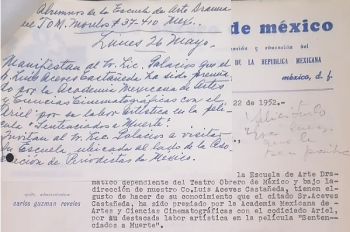 Alumnos de la Escuela de Arte Drama
del TOM. Morelos #37-410 Mex.
Lunes 26 Mayo.
Manifiestan al Sr. Lic. Palacios que el
Sr. Luis Aceves Castañeda ha sido premia
do por la Academia Mexicana de Artes
y Ciencias Cinematográficas con el
"Ariel" por su labor Artistica en la pelí-
cula "Sentenciados a Muerte".
Invitan al Sr. Lic. Palacios a visitar
su Escuela ubicada al lado de la Aso-
ciación de Periodistas de Mexico.
de méxico
DE LA REPUBLICA MEXICANA
méxico, d. f.
22 de 1952.-
carlos guzman reveles
la Escuela de Arte Dra-
matico dependiente del Teatro Obrero de México y bajo la
dirección de nuestro Co. Luis Aceves Castañeda, tienen el-
gusto de hacer de su conocimiento que el citado Sr. Aceves
Castañeda, ha sido premiado por la Academia Mexicana de-
Artes y Ciencias Cinematográficas con el codiciado Ariel, por
su destacada labor artística en la película "Senten-
ciados a Muerte".